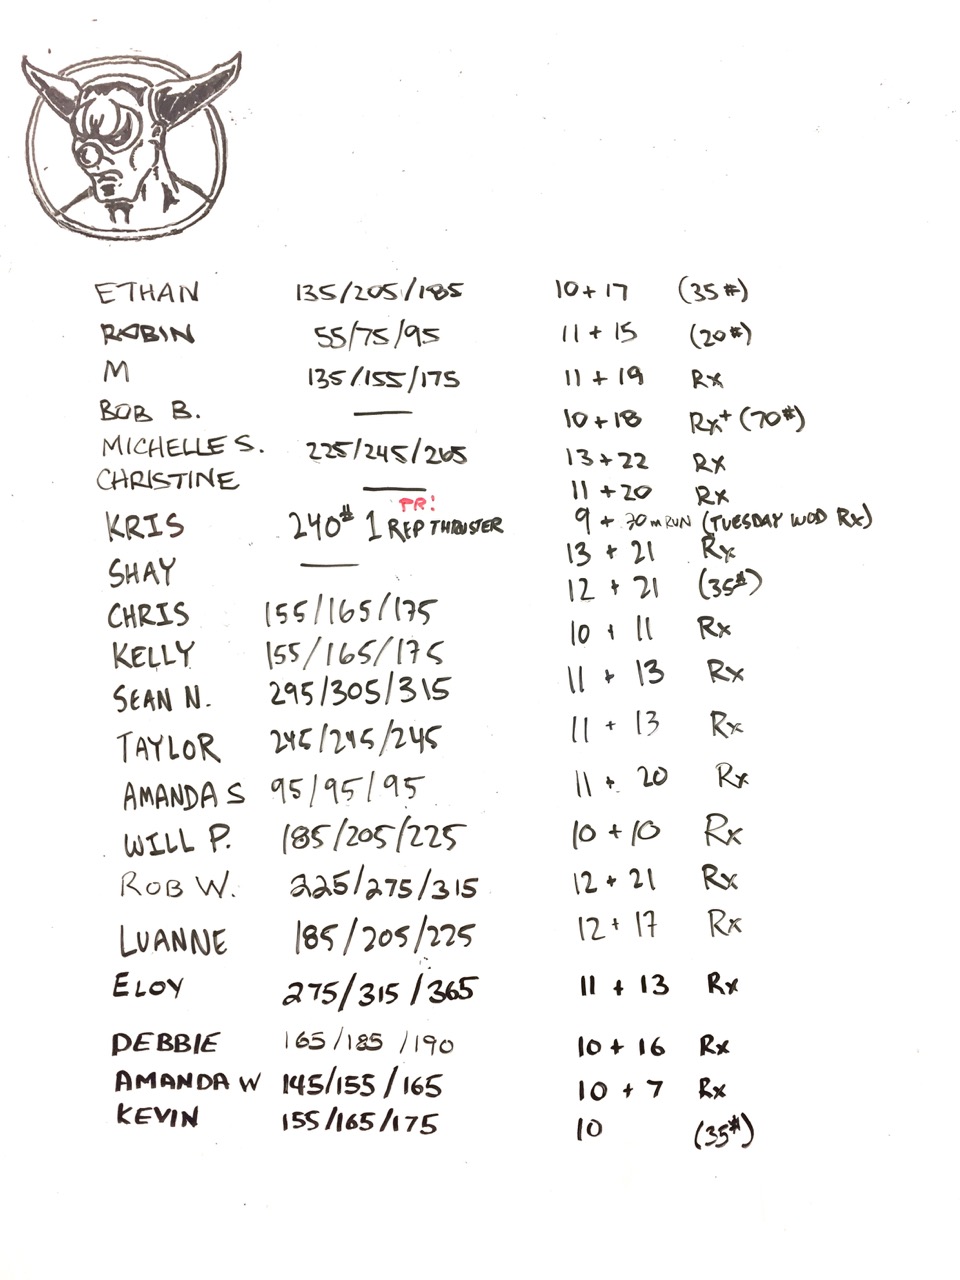 ETHAN 135/205/185 10+17 (35#)
ROBIN 55/75/95 11+15 (20#)
M 135/155/175 11+19 Rx
BOB B. — 10+18 Rx+ (70#)
MICHELLE S. 225/245/265 13+22 Rx
CHRISTINE — 11+20 Rx
PR!
KRIS 240# 1 REP THRUSTER 9 + 70m RUN (TUESDAY WOD Rx)
SHAY — 13 + 21 Rx
CHRIS 155/165/175 12 + 21 (35#)
KELLY 155/165/175 10 + 11 Rx
SEAN N. 295/305/315 11 + 13 Rx
TAYLOR 245/245/245 11 + 13 Rx
AMANDA S 95/95/95 11 + 20 Rx
WILL P. 185/205/225 10 + 10 Rx
ROB W. 225/275/315 12 + 21 Rx
LUANNE 185/205/225 12 + 17 Rx
ELOY 275/315/365 11 + 13 Rx
DEBBIE 165/185/190 10 + 16 Rx
AMANDA W 145/155/165 10 + 7 Rx
KEVIN 155/165/175 10 (35#)